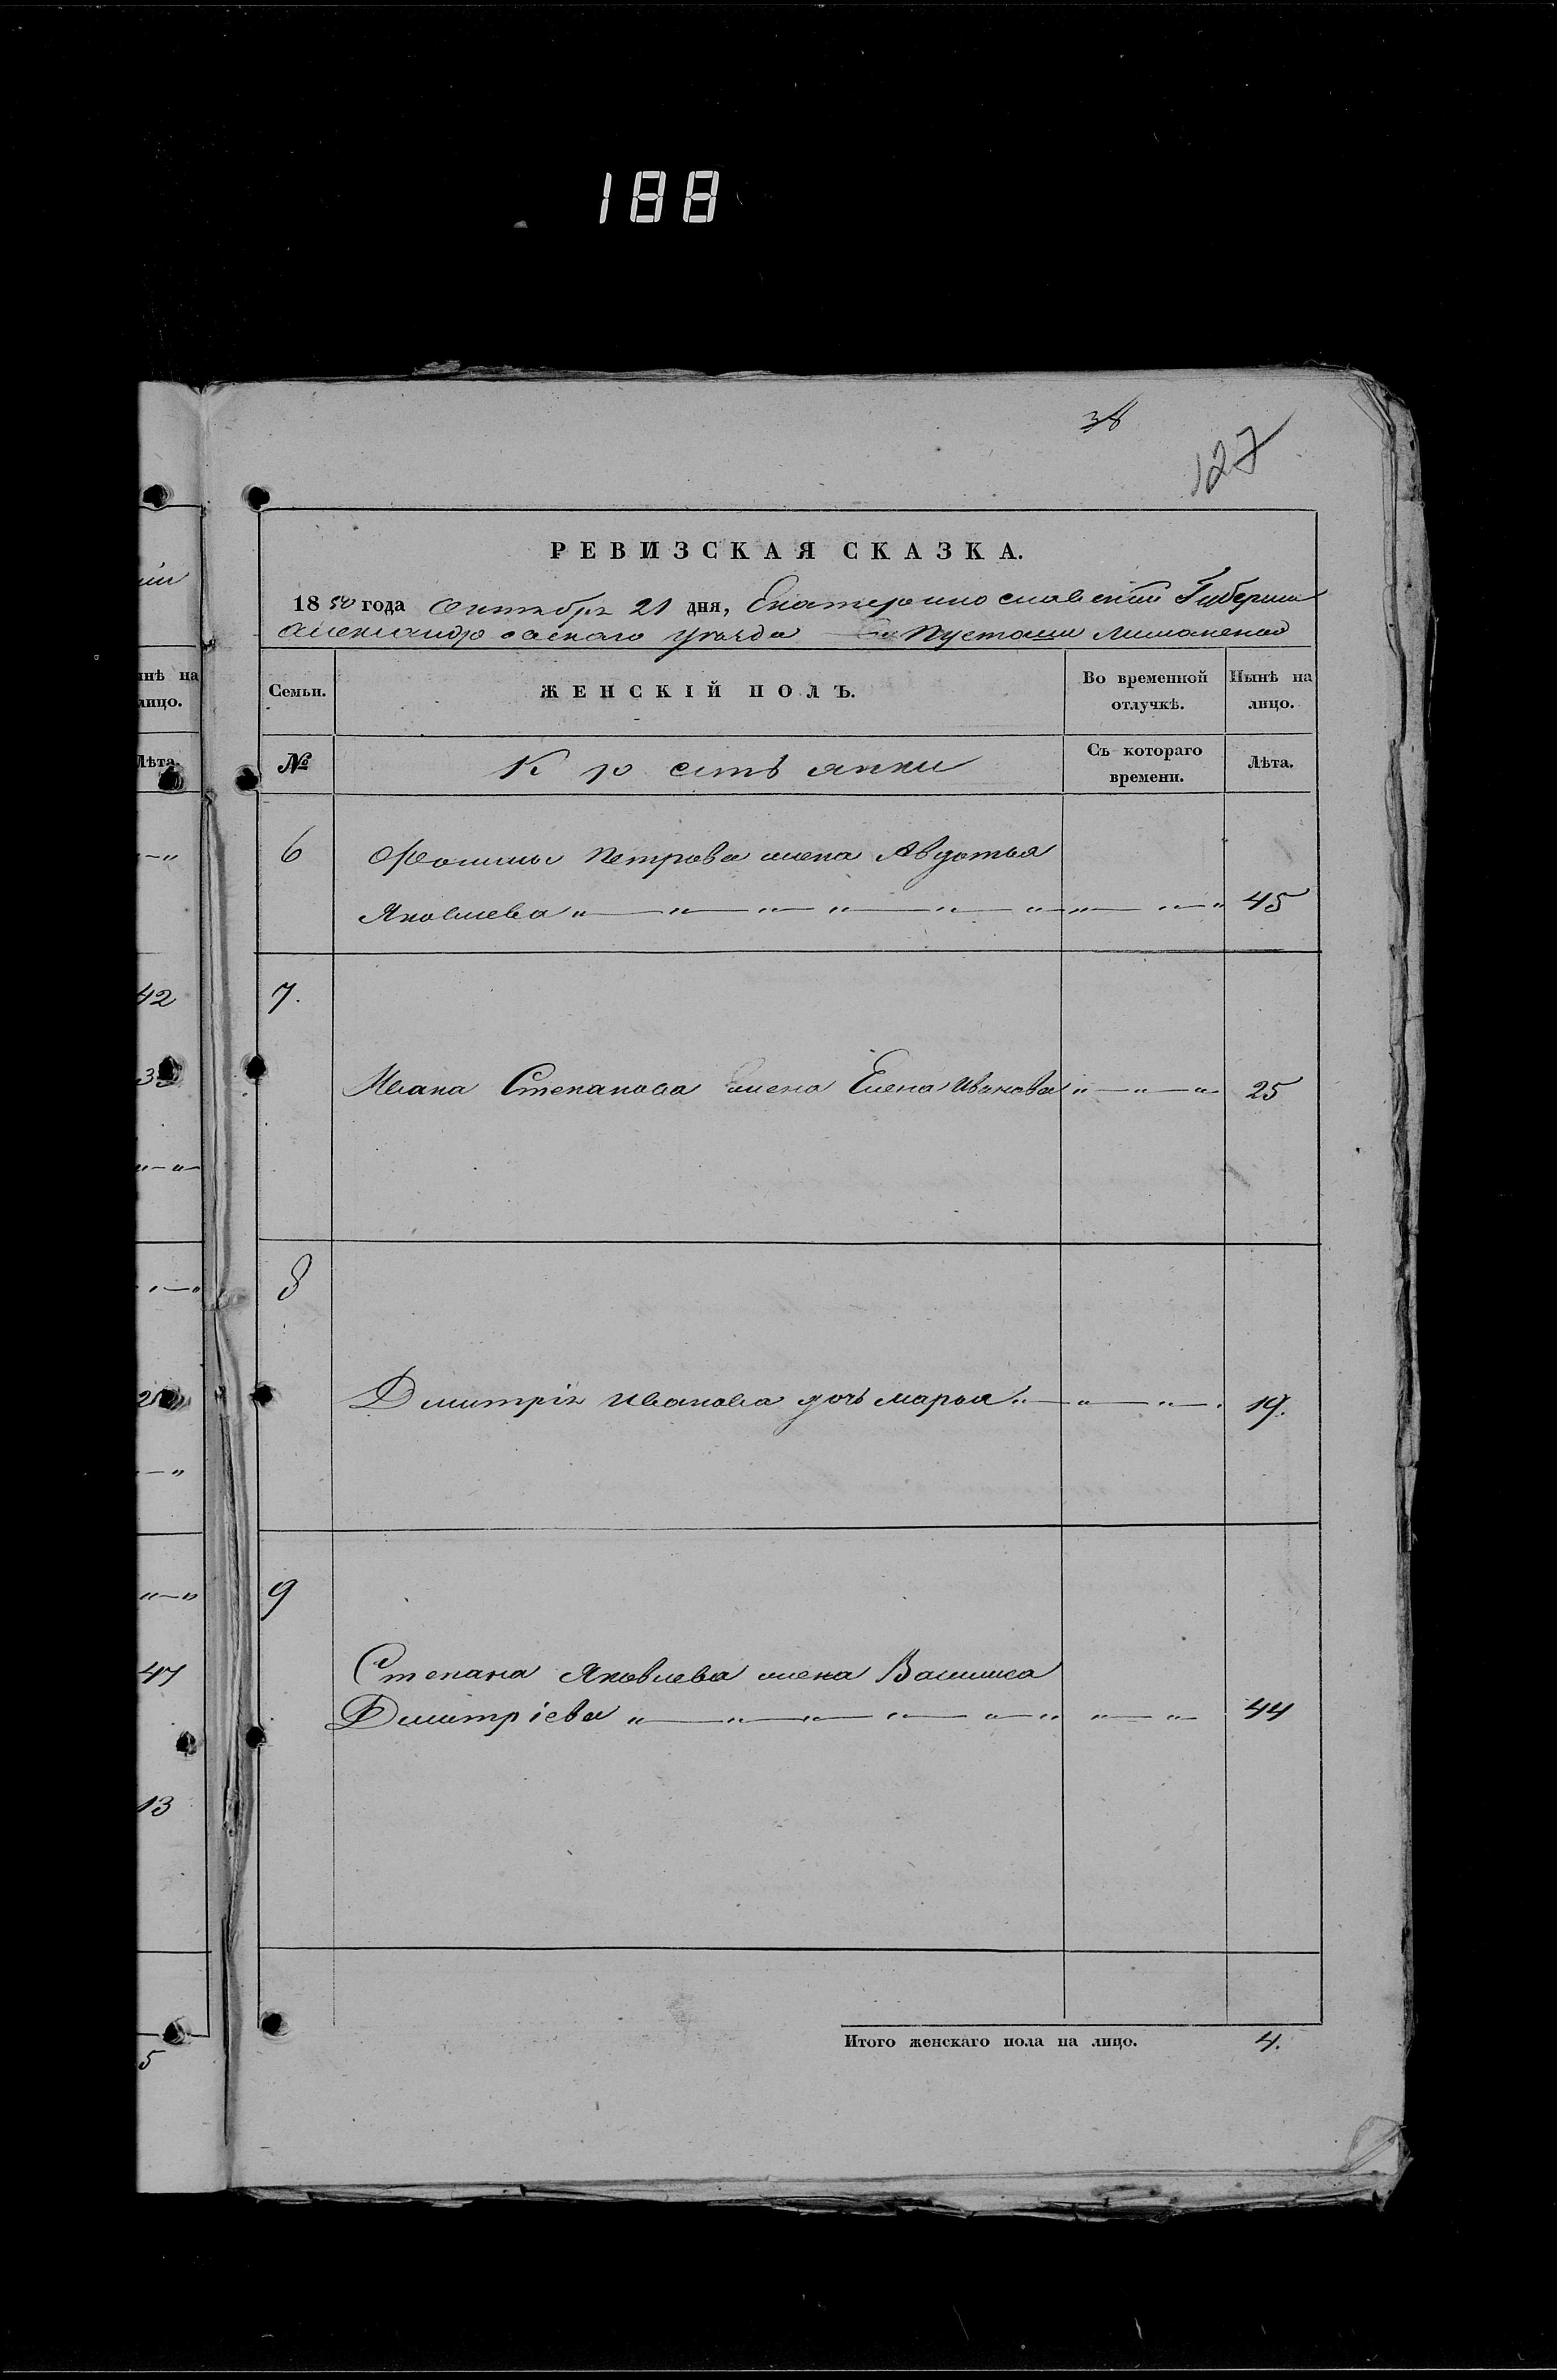 188
38
127
РЕВИЗСКАЯ СКАЗКА.
1850 года Октября 21 дня, Екатеринославской Губернии
Александровскаго уѣзда Пустоши
Семьи. ЖЕНСКІЙ ПОЛЪ. Во временной отлучкѣ. Нынѣ на лицо.
№ Крестьянки Съ котораго времени. Лѣта.
6 Фомы Петрова жена Авдотья
Яковлева 45
7. Ивана Степанова жена Елена Иванова 25
8 Дмитрія Иванова дочь Марья 19.
9 Степана Яковлева жена Васииса
Дмитріева 44
Итого женскаго пола на лицо. 4.
нѣ на
лицо.
Лѣта.
42
47
13
5